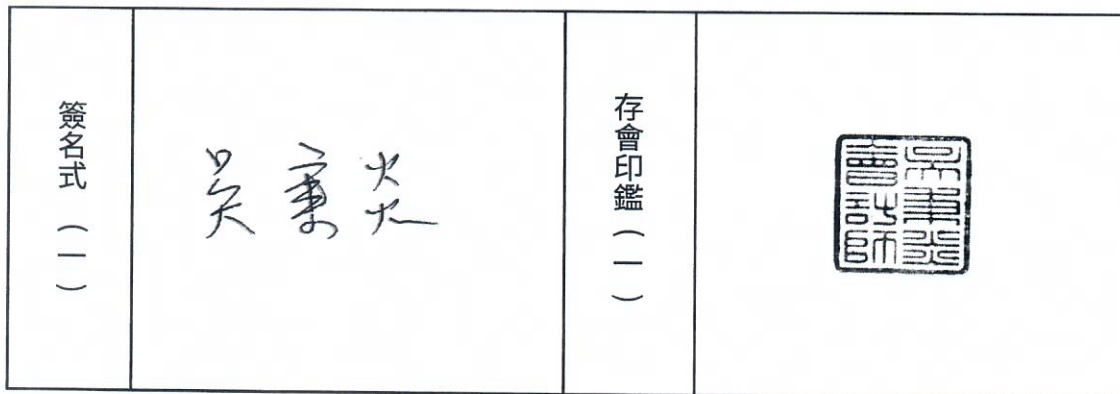 簽名式（一）
吳秉炎
存會印鑑（一）
吳秉炎
會計師